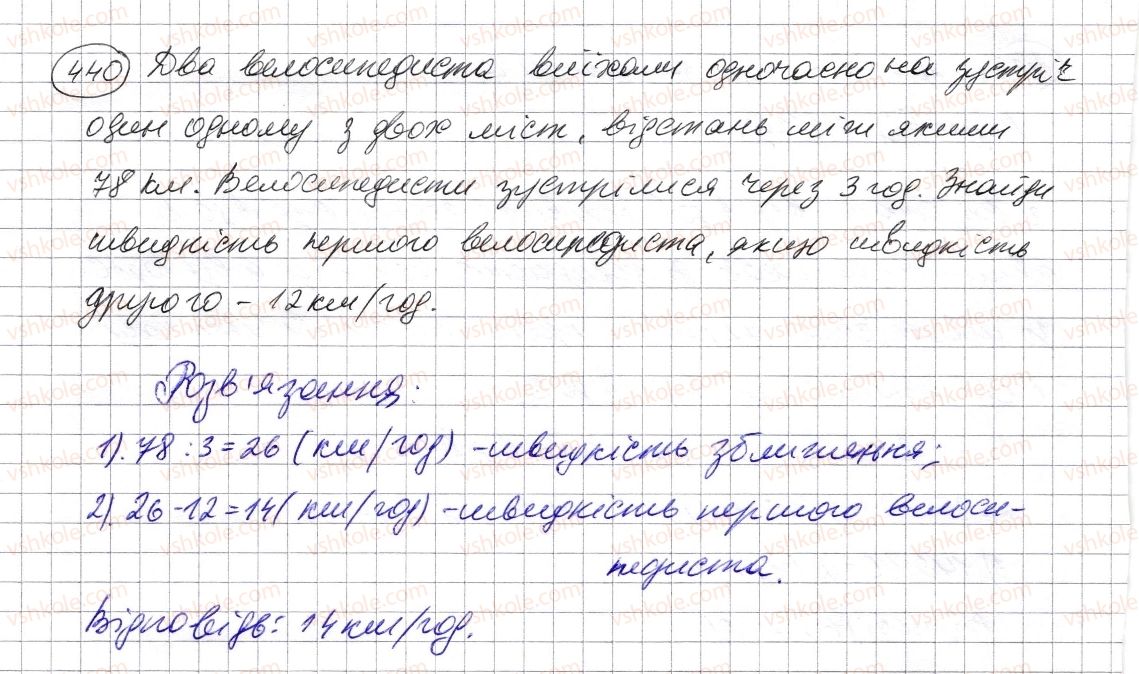 440 Два велосипедиста виїхали одночасно на зустріч
один одному з двох міст, відстань між якими
78 км. Велосипедисти зустрілися через 3 год. Знайди
швидкість першого велосипедиста, якщо швидкість
другого - 12 км/год.
Розв'язання:
1). 78 : 3 = 26 (км/год) - швидкість зближення;
2). 26 - 12 = 14 (км/год) - швидкість першого велоси-
педиста.
Відповідь: 14 км/год.